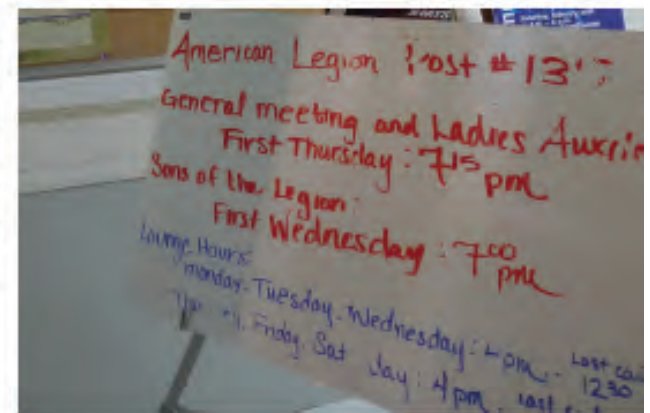 American Legion Post #13
General meeting and Ladies
First Thursday: 7 15 pm
Sons of the Legion:
First Wednesday: 7 00 pm
Lounge Hours:
Monday. Tuesday. Wednesday: 4pm - Last
1230
Friday. Sat day: 4pm. Last